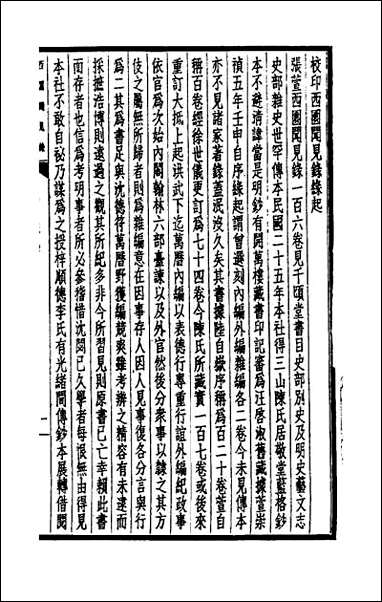 校印西園聞見錄緣起
張萱西園聞見錄一百六卷見千頃堂書目史部别史及明史藝文志
史部雜史世罕傳本民國二十五年本社得三山陳氏居敬堂藍格鈔
本不避清諱當是明鈔有開萬樓藏書印記審爲汪啓淑舊藏據萱崇
禎五年壬申自序緣起謂曾選刻内編外編雜編各二卷今未見傳本
亦不見諸家著錄蓋泯沒久矣其書據陸自嶽序稱爲百二十卷萱自
稱百卷經徐世儀更訂爲七十四卷今陳氏所藏實一百七卷或後來
重訂大抵上起洪武下迄萬曆内編以表德行專重行誼外編紀政事
依官爲次始内閣翰林六部臺諫以及外官然後分衆事以隸之其方
伎之屬無所歸者則爲雜編意在因事存人因人見事復各分言與行
爲二其爲書足與沈德符萬曆野獲編競爽雖考辨之精容有未逮而
採摭浩博則遠過之觀其所紀多非今所習見則原書已亡幸賴此書
而存者也信爲考明事者所必參稽惜沈閟已久學者每恨無由得見
本社不敢自祕乃謀爲之授梓順德李氏有光緒間傳鈔本展轉借閱
西園聞見錄